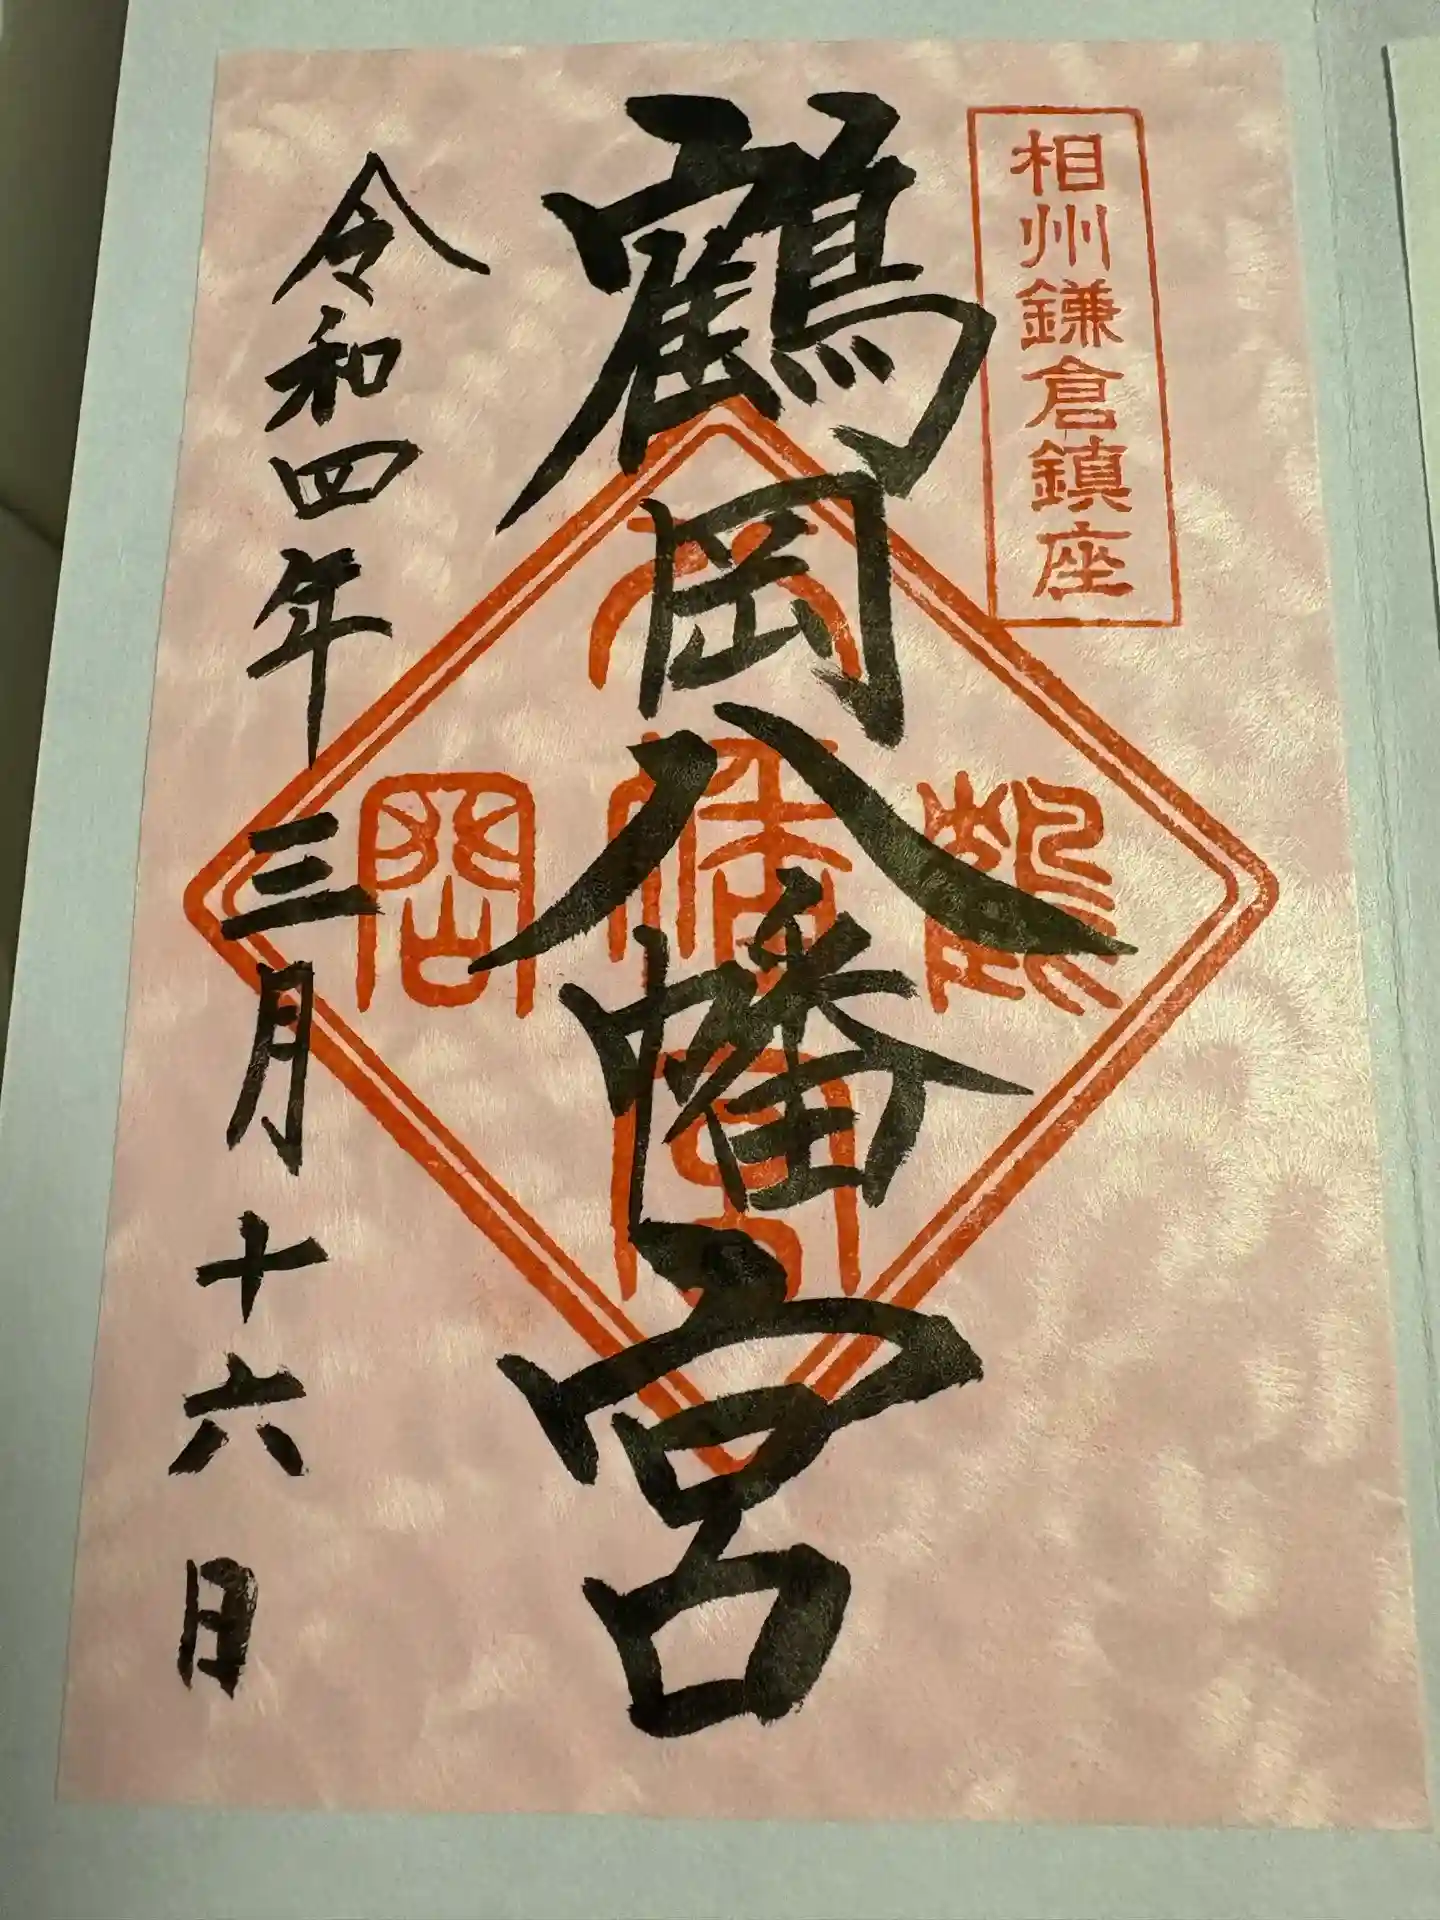 相州鎌倉鎮座
鶴岡八幡宮
鶴
八幡宮
岡
令和四年三月十六日